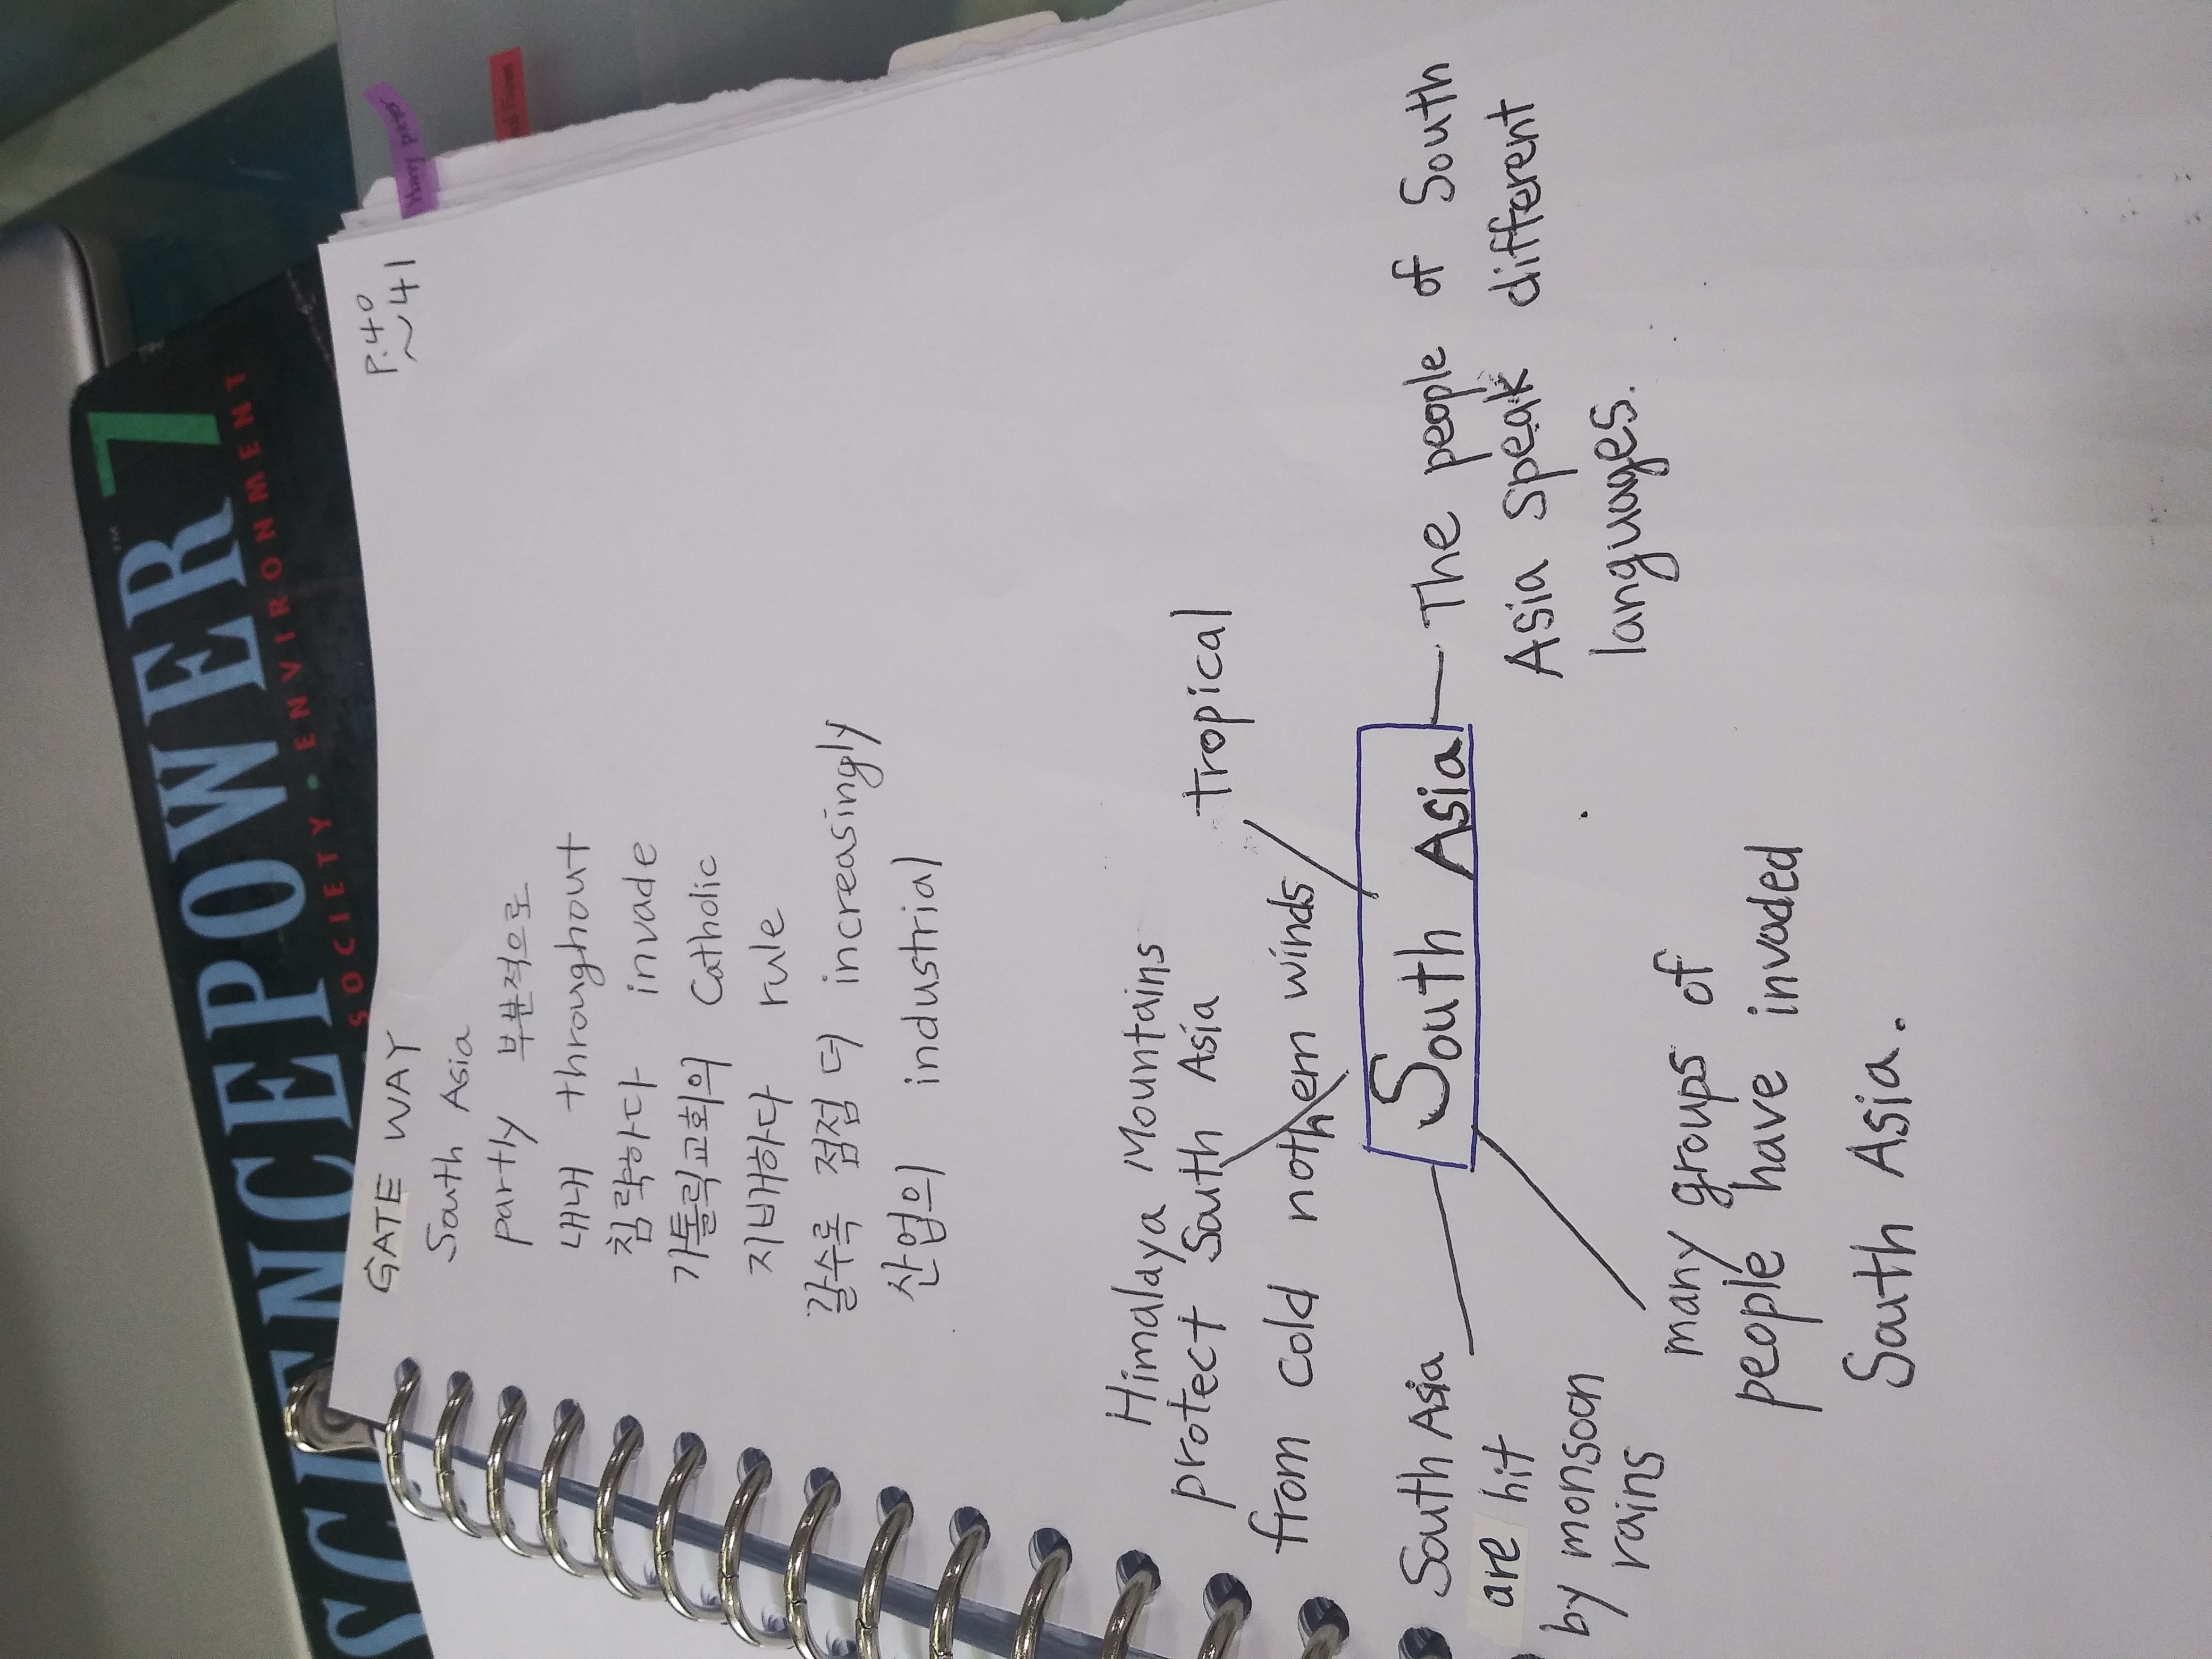 SCIENCEPOWER™ 7
SOCIETY • ENVIRONMENT
Harry potter
P.40
~41
GATE WAY
South Asia
partly 부분적으로
내내 throughout
침략하다 invade
가톨릭교회의 Catholic
지배하다 rule
갈수록 점점 더 increasingly
산업의 industrial
Himalaya Mountains
protect South Asia
from cold nothern winds
tropical
South Asia
The people of South
Asia speak different
languages.
South Asia
are hit
by monsoon
rains
many groups of
people have invaded
South Asia.